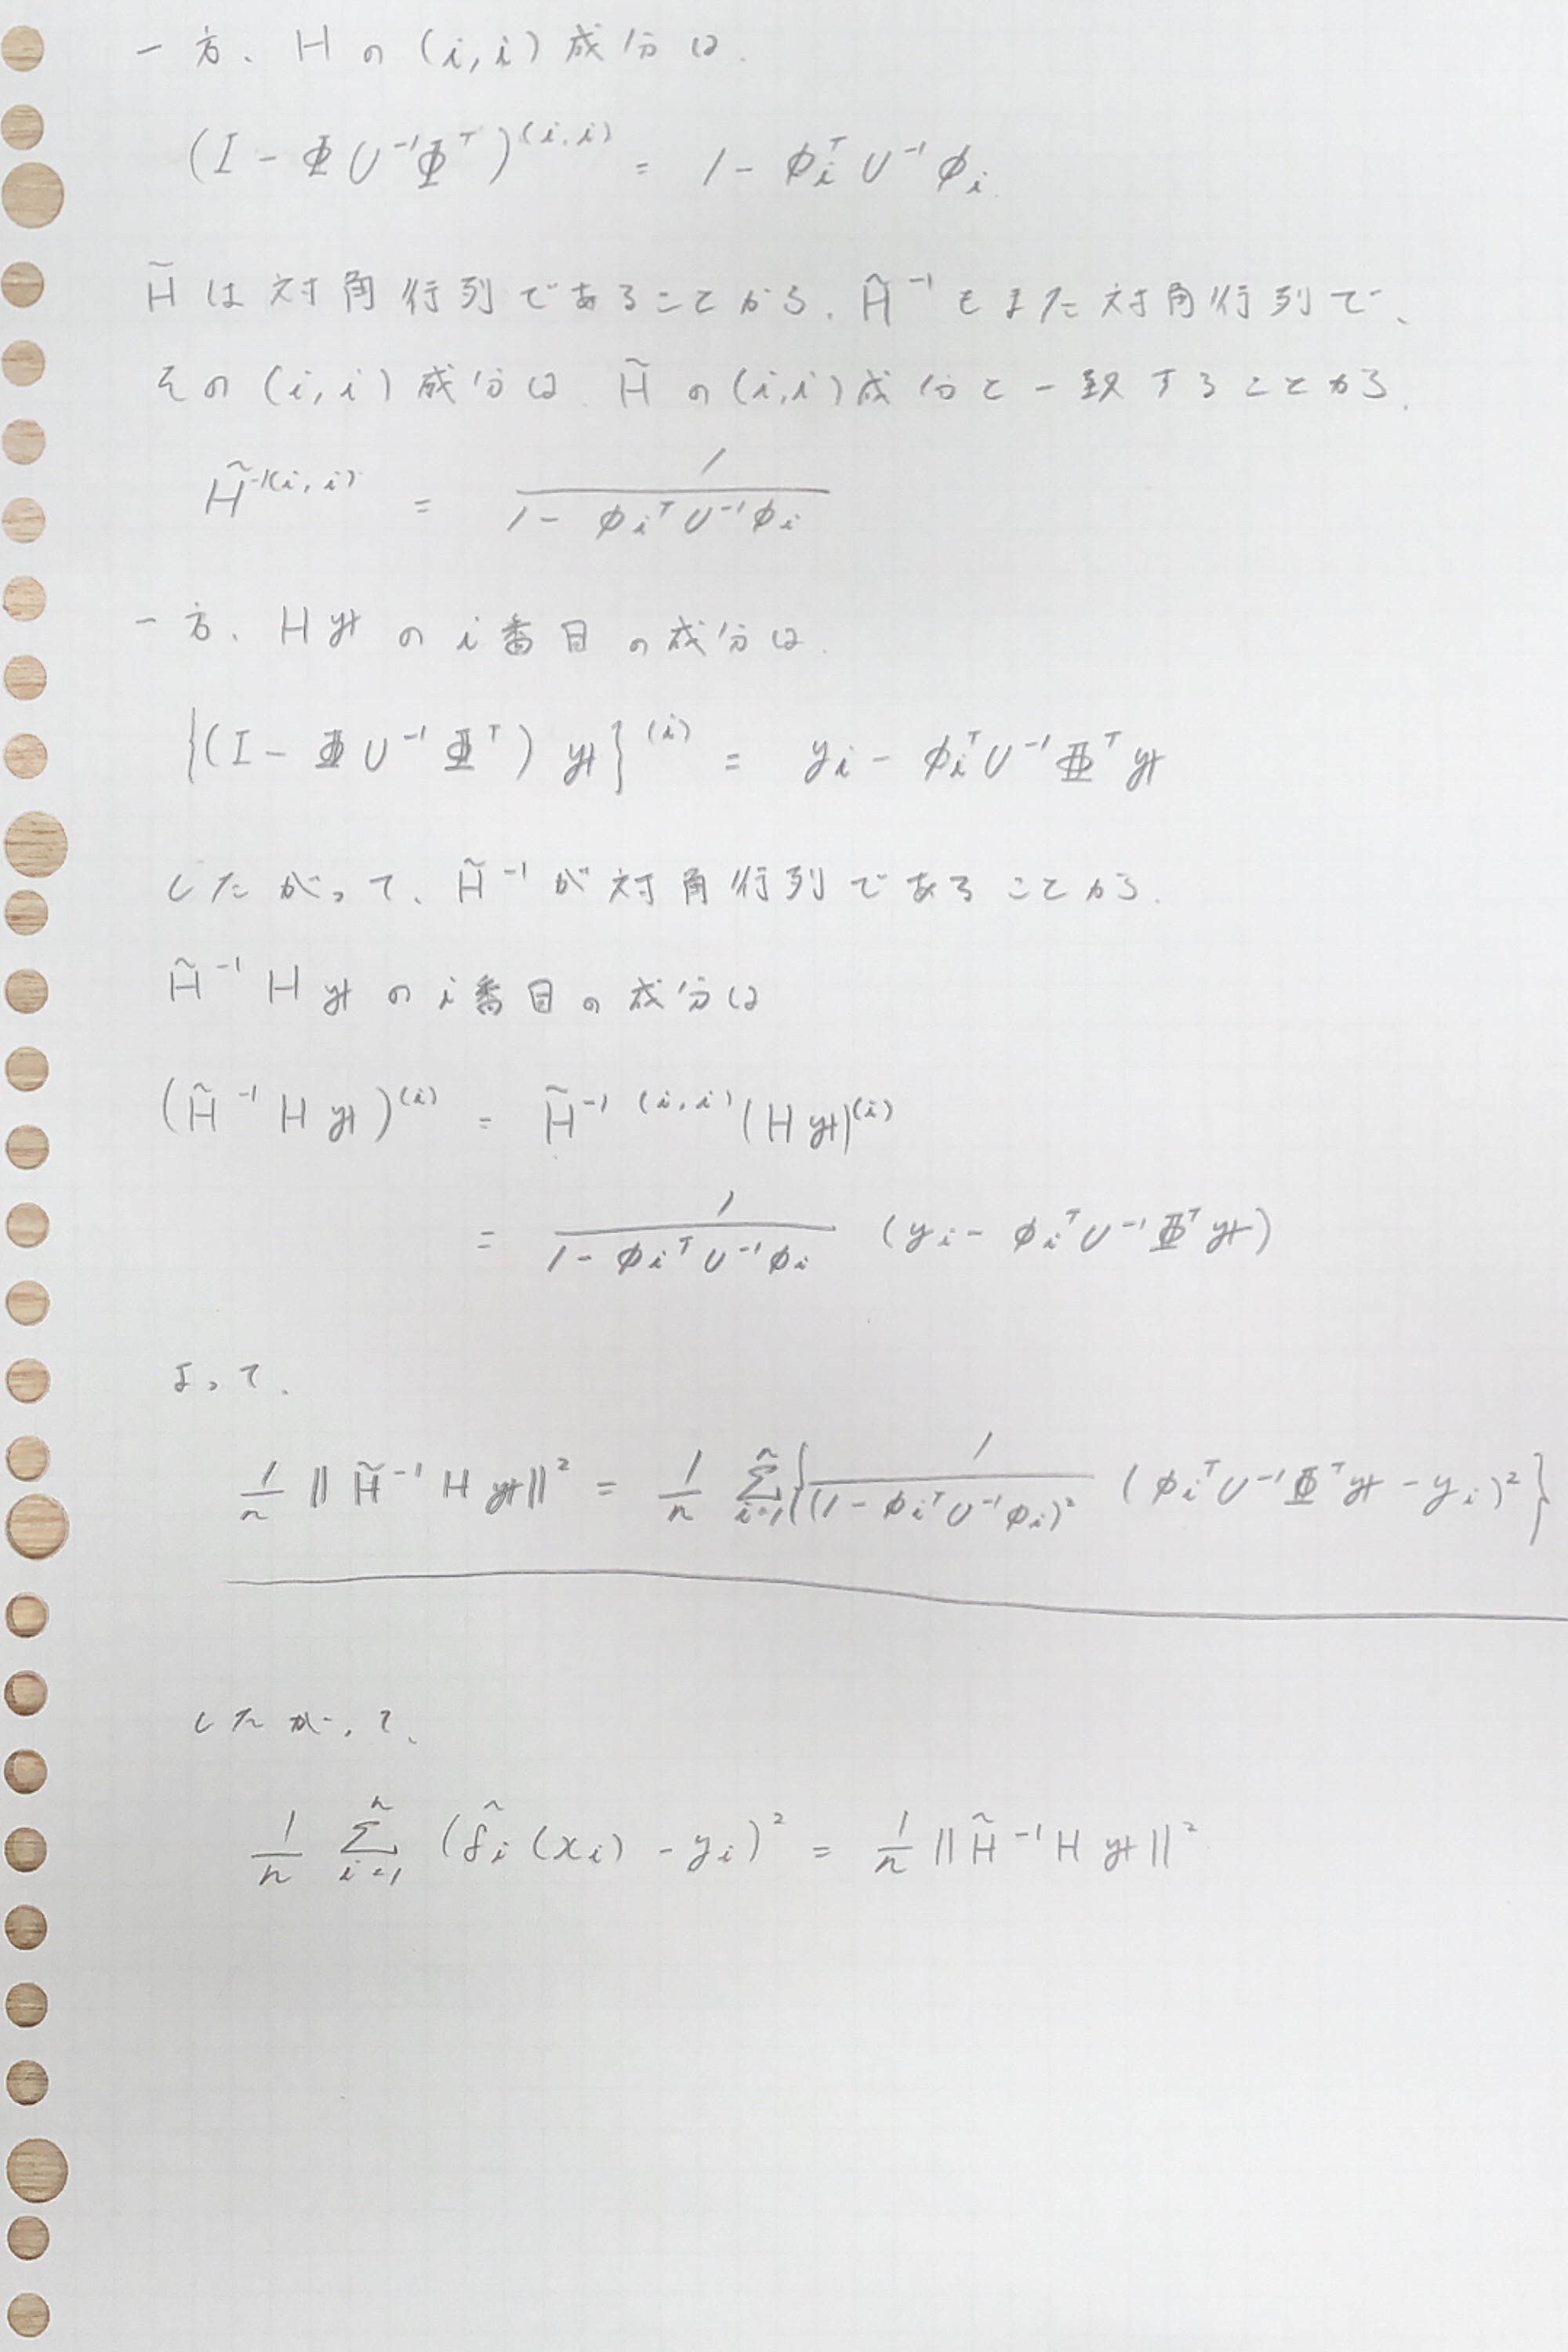 一方、Hの(i,i)成分は、
(I - ΦU⁻¹Φᵀ)^(i,i) = 1 - φᵢᵀU⁻¹φᵢ
H̃は対角行列であることから、H̃⁻¹もまた対角行列で、
その(i,i)成分は、H̃の(i,i)成分と一致することから、
H̃⁻¹^(i,i) = 1/(1 - φᵢᵀU⁻¹φᵢ)
一方、Hyのi番目の成分は、
{(I - ΦU⁻¹Φᵀ)y}^(i) = yᵢ - φᵢᵀU⁻¹Φᵀy
したがって、H̃⁻¹が対角行列であることから、
H̃⁻¹Hyのi番目の成分は
(H̃⁻¹Hy)^(i) = H̃⁻¹^(i,i)(Hy)^(i)
= 1/(1 - φᵢᵀU⁻¹φᵢ) (yᵢ - φᵢᵀU⁻¹Φᵀy)
よって、
1/n ‖H̃⁻¹Hy‖² = 1/n Σ_{i=1}^{n} {1/(1 - φᵢᵀU⁻¹φᵢ)² (φᵢᵀU⁻¹Φᵀy - yᵢ)²}
したがって、
1/n Σ_{i=1}^{n} (f̂ᵢ(xᵢ) - yᵢ)² = 1/n ‖H̃⁻¹Hy‖²